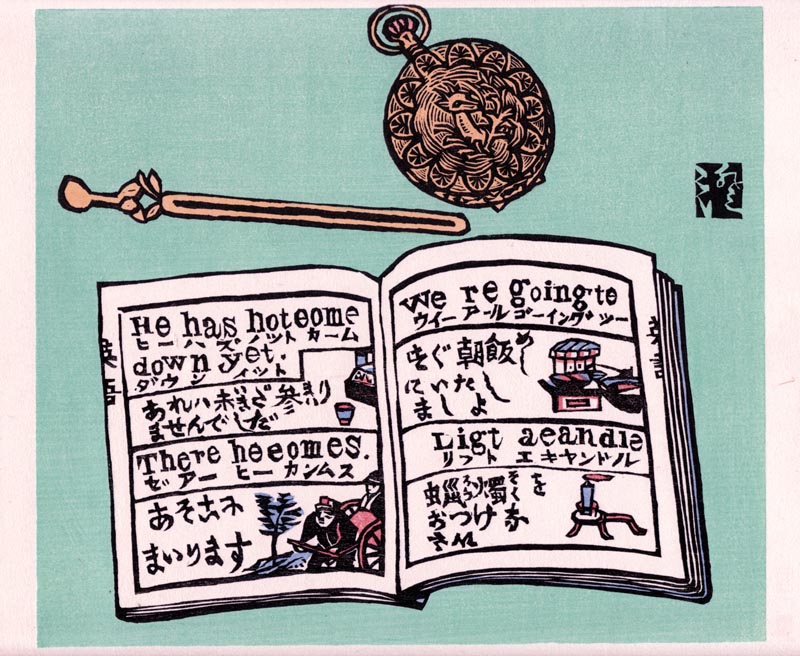 He has hoteome
ヒー ハズ ノット カーム
down yet.
ダウン イット
ませんでしだ
There heeomes.
ゼアー ヒー カンムス
まいります
英語
We re going to
ウイー アール ゴーイング ツー
朝飯
にいたし
ましよ
Ligt aeandle
リフト エ キヤンドル
を
おつけな
英語